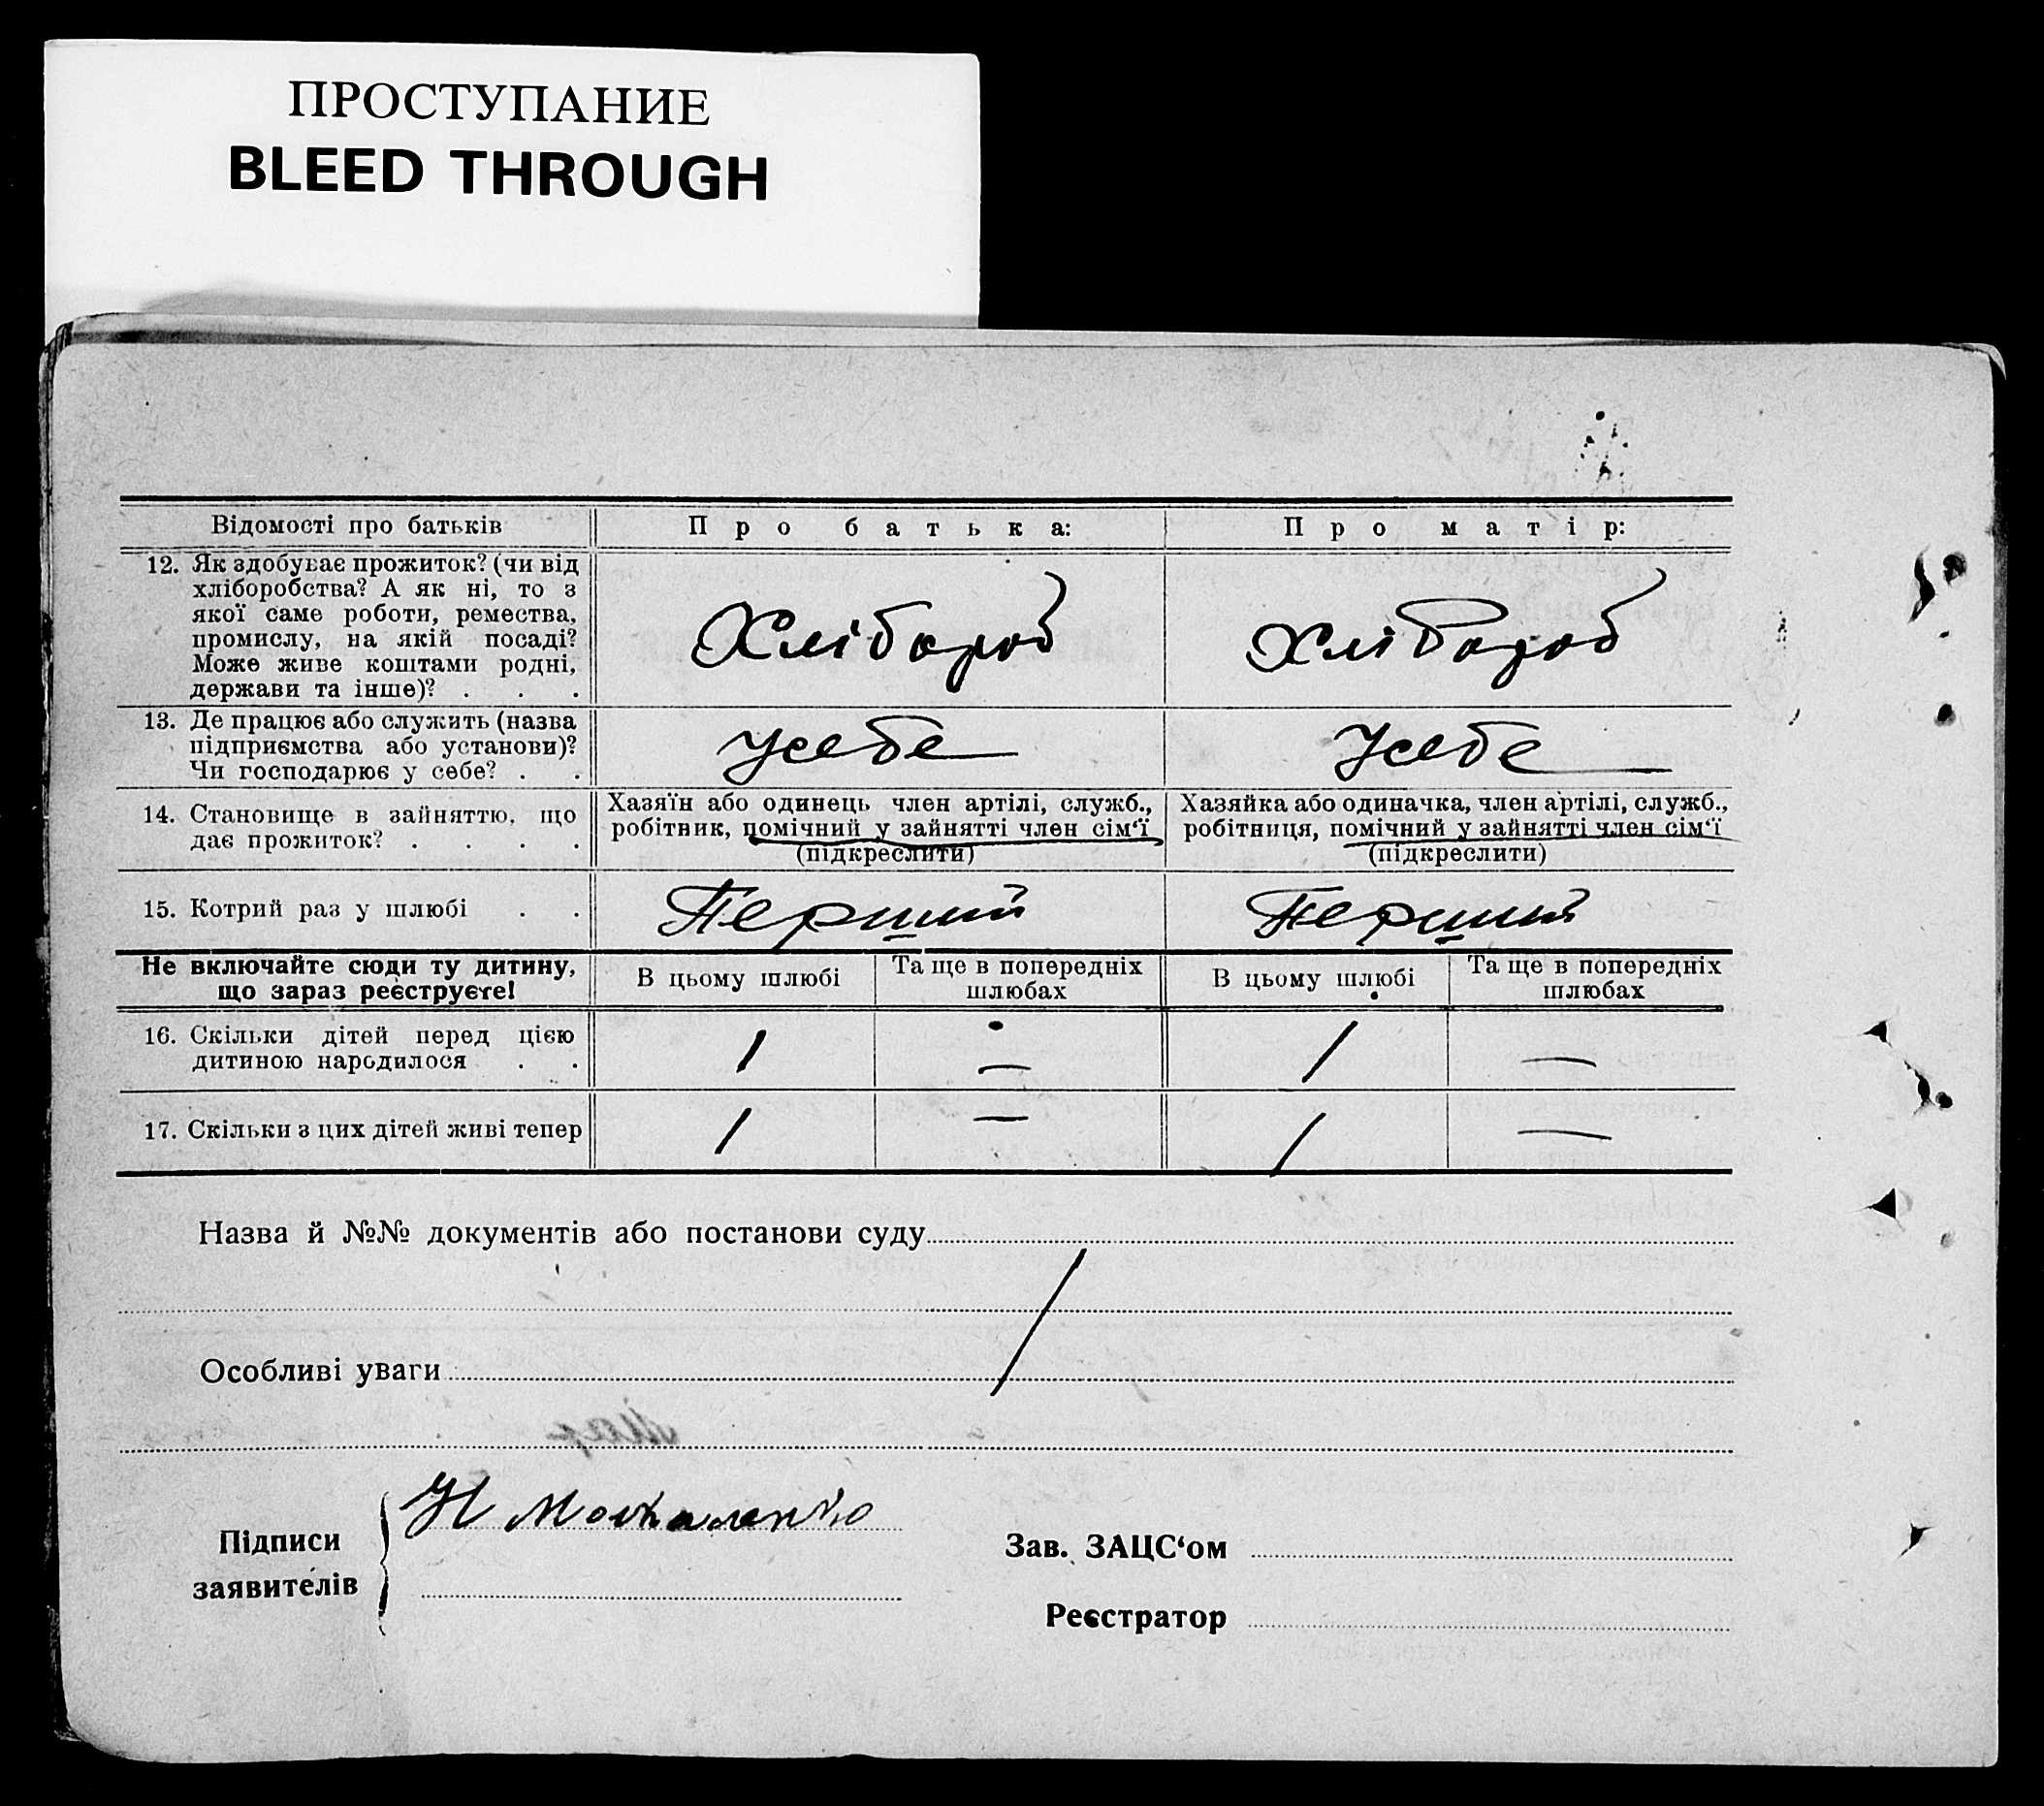 ПРОСТУПАНИЕ
BLEED THROUGH
Відомості про батьків
Про батька:
Про матір:
12. Як здобуває прожиток? (чи від
хліборобства? А як ні, то з
якої саме роботи, ремества,
промислу, на якій посаді?
Може живе коштами родні,
держави та інше)? . . .
Хлібороб
Хлібороб
13. Де працює або служить (назва
підприємства або установи)?
Чи господарює у себе? . .
Усебе
Усебе
14. Становище в зайняттю, що
дає прожиток? . . . .
Хазяїн або одинець член артілі, служб.,
робітник, помічний у зайнятті член сім‘ї
(підкреслити)
Хазяйка або одиначка, член артілі, служб.,
робітниця, помічний у зайнятті член сім‘ї
(підкреслити)
15. Котрий раз у шлюбі . .
Перший
Перший
Не включайте сюди ту дитину,
що зараз реєструєте!
В цьому шлюбі
Та ще в попередніх
шлюбах
В цьому шлюбі
Та ще в попередніх
шлюбах
16. Скільки дітей перед цією
дитиною народилося . .
1
—
1
—
17. Скільки з цих дітей живі тепер
1
—
1
—
Назва й №№ документів або постанови суду
Особливі уваги
Підписи
заявителів
Н Москаленко
Зав. ЗАЦС‘ом
Реєстратор